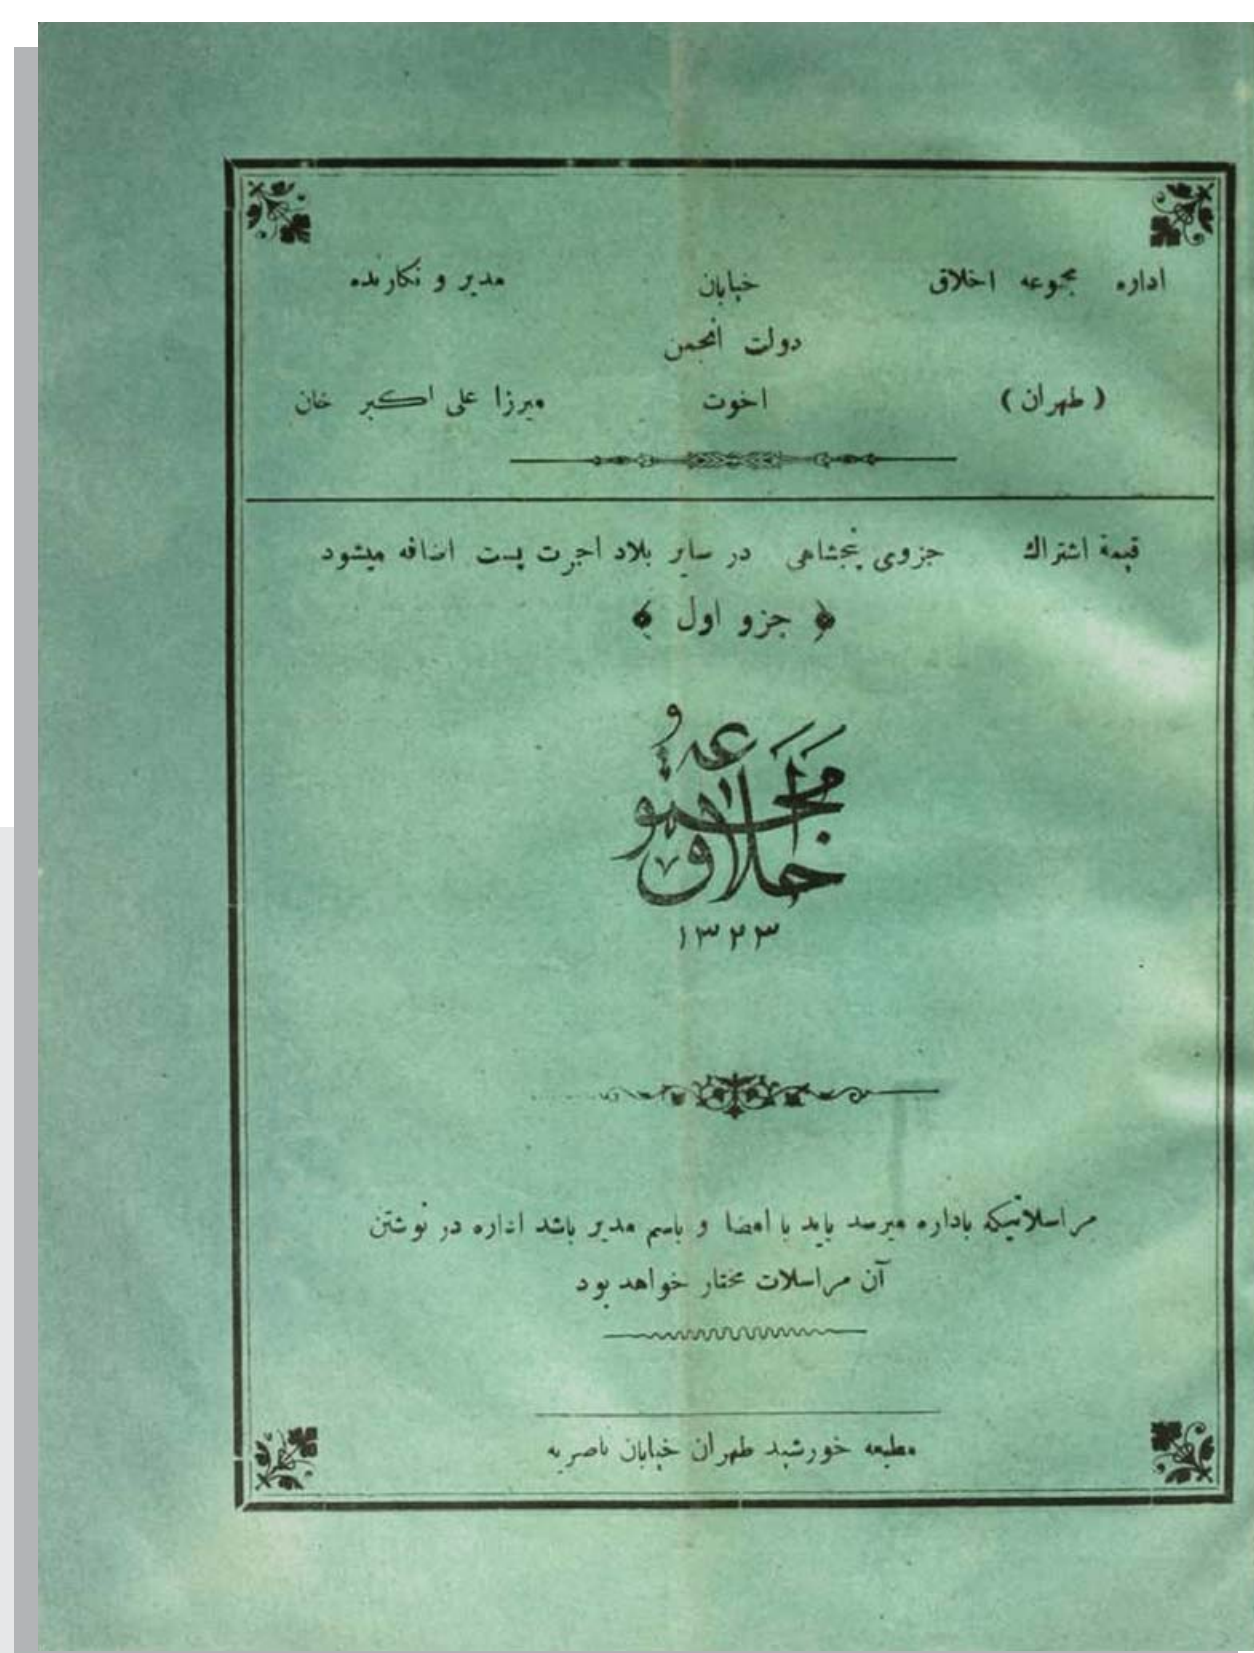 اداره مجموعه اخلاق خیابان مدیر و نکارنده
دولت انجمن
(طهران) اخوت میرزا علی اکبر خان
قیمة اشتراك جزوی پنجشاهی در سایر بلاد اجرت پست اضافه میشود
﴿ جزو اول ﴾
مجموعه اخلاق
۱۳۲۳
مراسلاتیکه باداره میرسد باید با امضا و باسم مدیر باشد اداره در نوشتن
آن مراسلات مختار خواهد بود
مطبعه خورشید طهران خیابان ناصریه